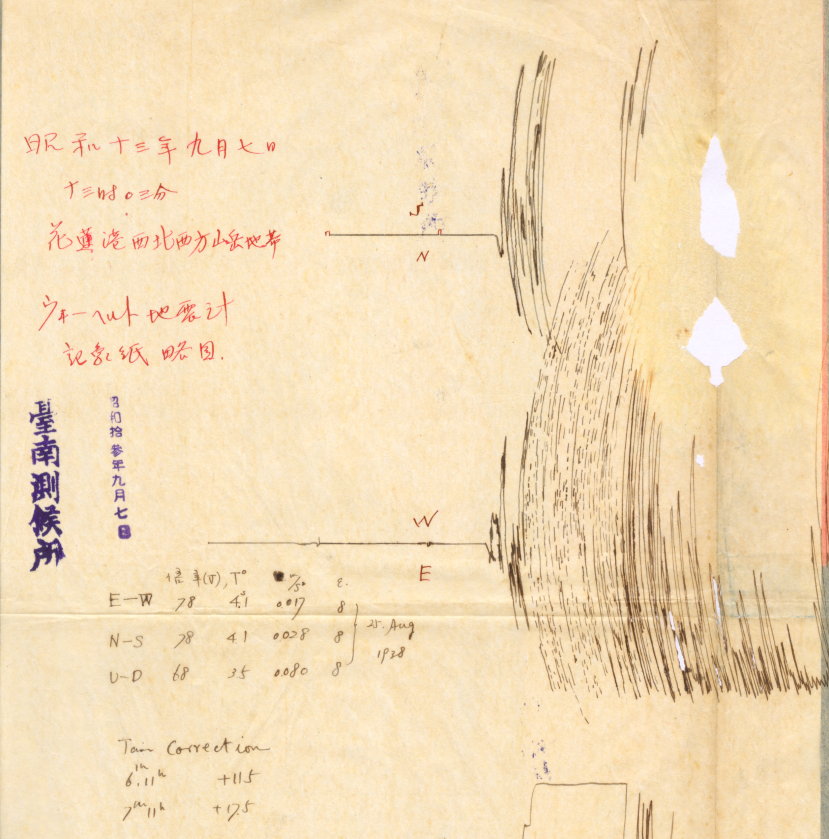 昭和十三年九月七日
十三時〇三分
花蓮港西北西方山岳地帯
ウィーヘルト地震計
記象紙略図.
臺南測候所
昭和拾參年九月七日
S
N
W
E
倍率(V), T° r/T² ε.
E-W 78 4.1 0.017 8
N-S 78 4.1 0.028 8
U-D 68 3.5 0.080 8
25. Aug
1938
Correction
6. 11h +11.5
7 11h +17.5